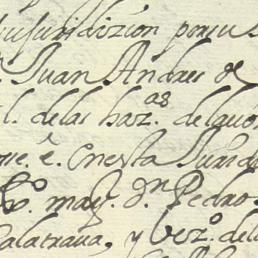 jurisdizion por su
Juan Andres de
l. delas haz.as delaui
me. ê. en esta Jurid
may. Dn Pedro
Calatraua, y vez.o del